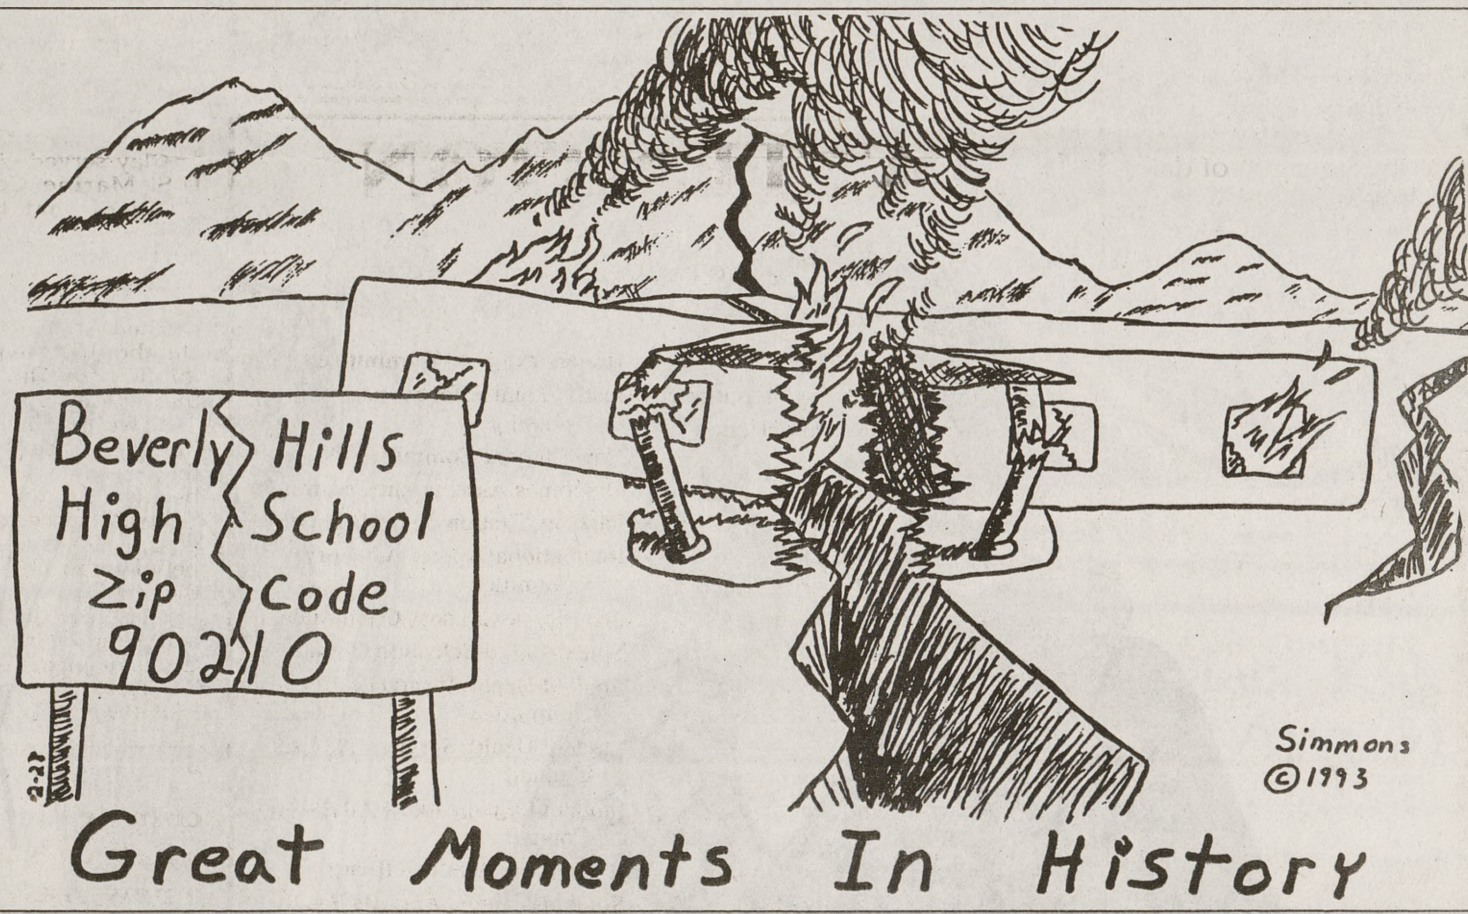 Beverly Hills
High School
Zip Code
90210
2-23
Simmons
© 1993
Great Moments In History